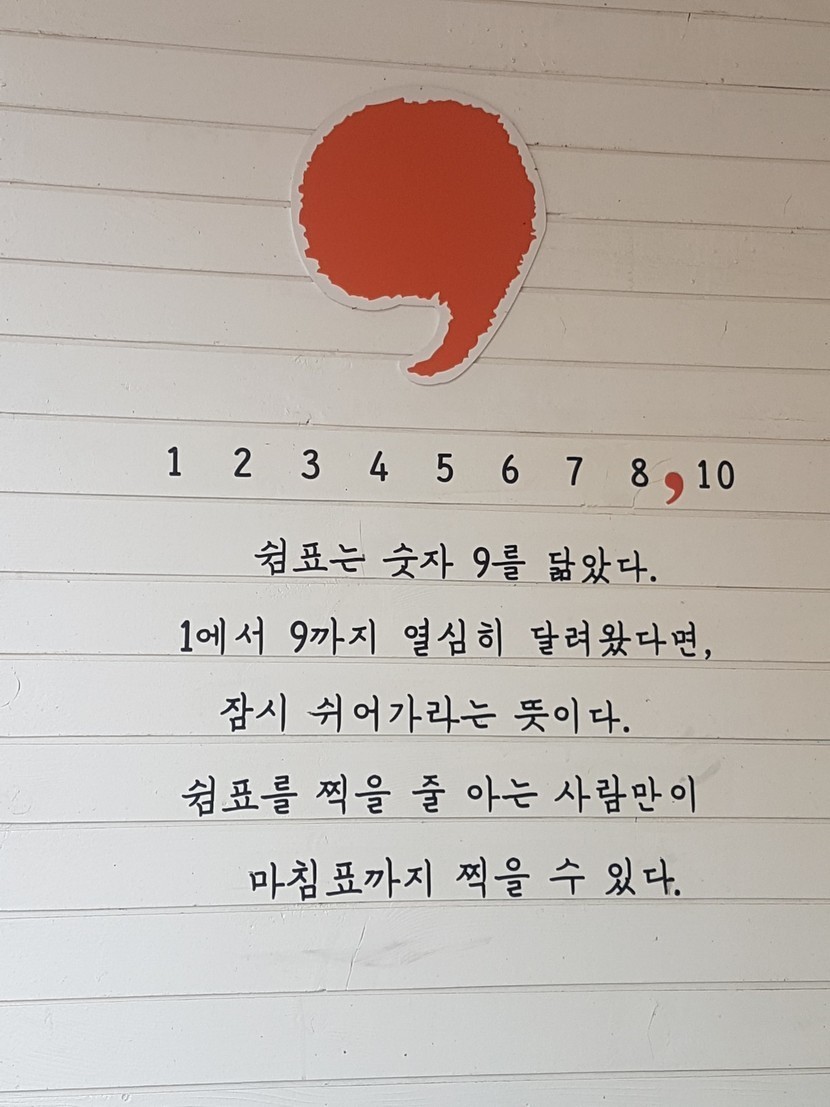 1 2 3 4 5 6 7 8 , 10
쉼표는 숫자 9를 닮았다.
1에서 9까지 열심히 달려왔다면,
잠시 쉬어가라는 뜻이다.
쉼표를 찍을 줄 아는 사람만이
마침표까지 찍을 수 있다.